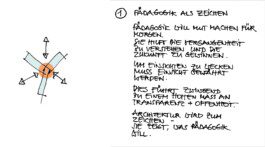 1 PÄDAGOGIK ALS ZEICHEN
PÄDAGOGIK WILL MUT MACHEN FÜR
MORGEN.
SIE HILFT DIE VERGANGENHEIT
ZU VERSTEHEN UND DIE
ZUKUNFT ZU GEWINNEN.
UM EINSICHTEN ZU GEWINNEN
MUSS EINSICHT GEWÄHRT
WERDEN.
DIES FÜHRT ZWINGEND
ZU EINEM HOHEN MASS AN
TRANSPARENZ + OFFENHEIT.
ARCHITEKTUR WIRD ZUM
ZEICHEN -
SIE ZEIGT, WAS PÄDAGOGIK
WILL.